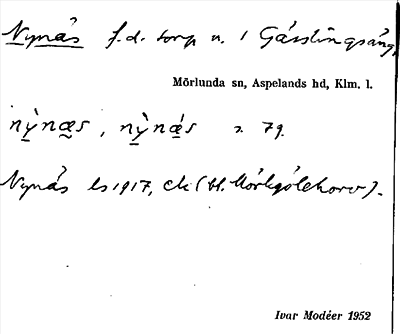 Nynås f.d. torp u. 1 Gåsslingsäng,
Mörlunda sn, Aspelands hd, Klm. l.
nỳnæs, nỳnǽs s. 79.
Nynås ls 1917, ek (bl. Mörkgölehorv).
Ivar Modéer 1952